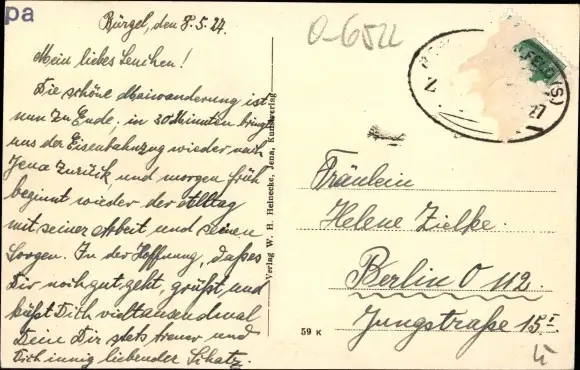 pa
Bürgel, den 8.5.27.
Mein liebes Lenchen!
Die schöne Maiwanderung ist
nun zu Ende, in 30 Minuten bringt
uns der Eisenbahnzug wieder nach
Jena zurück, und morgen früh
beginnt wieder der Alltag
mit seiner Arbeit und seinen
Sorgen. In der Hoffnung, daß es
Dir noch gut geht, grüßt und
küßt Dich vieltausendmal
Deine Dir stets treuer und
Dich innig liebender Schatz.
Verlag W. H. Heinecke, Jena, Kunstverlag
0-6522
FELD (S)
27
Fräulein
Helene Zielke.
Berlin O 112.
Jungstraße 15 I
59 K